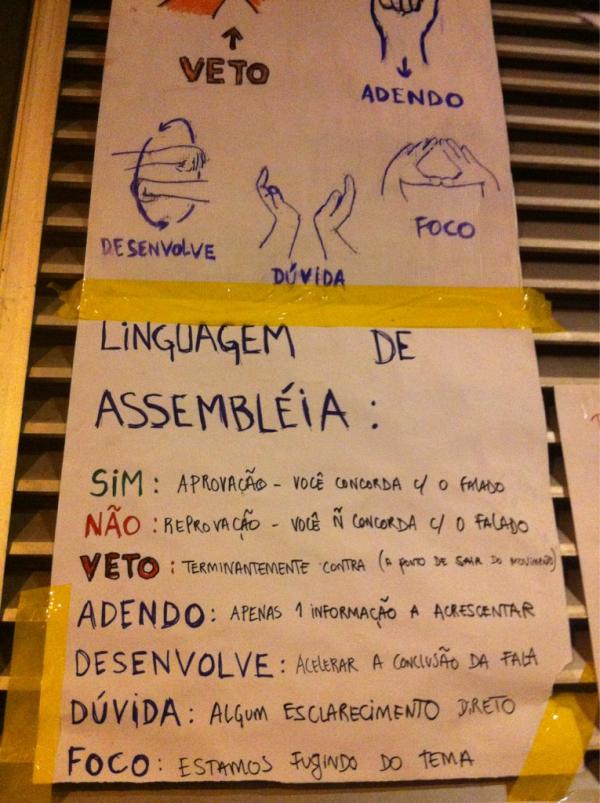 VETO
ADENDO
DESENVOLVE
DÚVIDA
FOCO
LINGUAGEM DE
ASSEMBLÉIA :
SIM : APROVAÇÃO - VOCÊ CONCORDA C/ O FALADO
NÃO : REPROVAÇÃO - VOCÊ Ñ CONCORDA C/ O FALADO
VETO : TERMINANTEMENTE CONTRA (A PONTO DE SAIR DO MOVIMENTO)
ADENDO : APENAS 1 INFORMAÇÃO A ACRESCENTAR
DESENVOLVE : ACELERAR A CONCLUSÃO DA FALA
DÚVIDA : ALGUM ESCLARECIMENTO DIRETO
FOCO : ESTAMOS FUGINDO DO TEMA